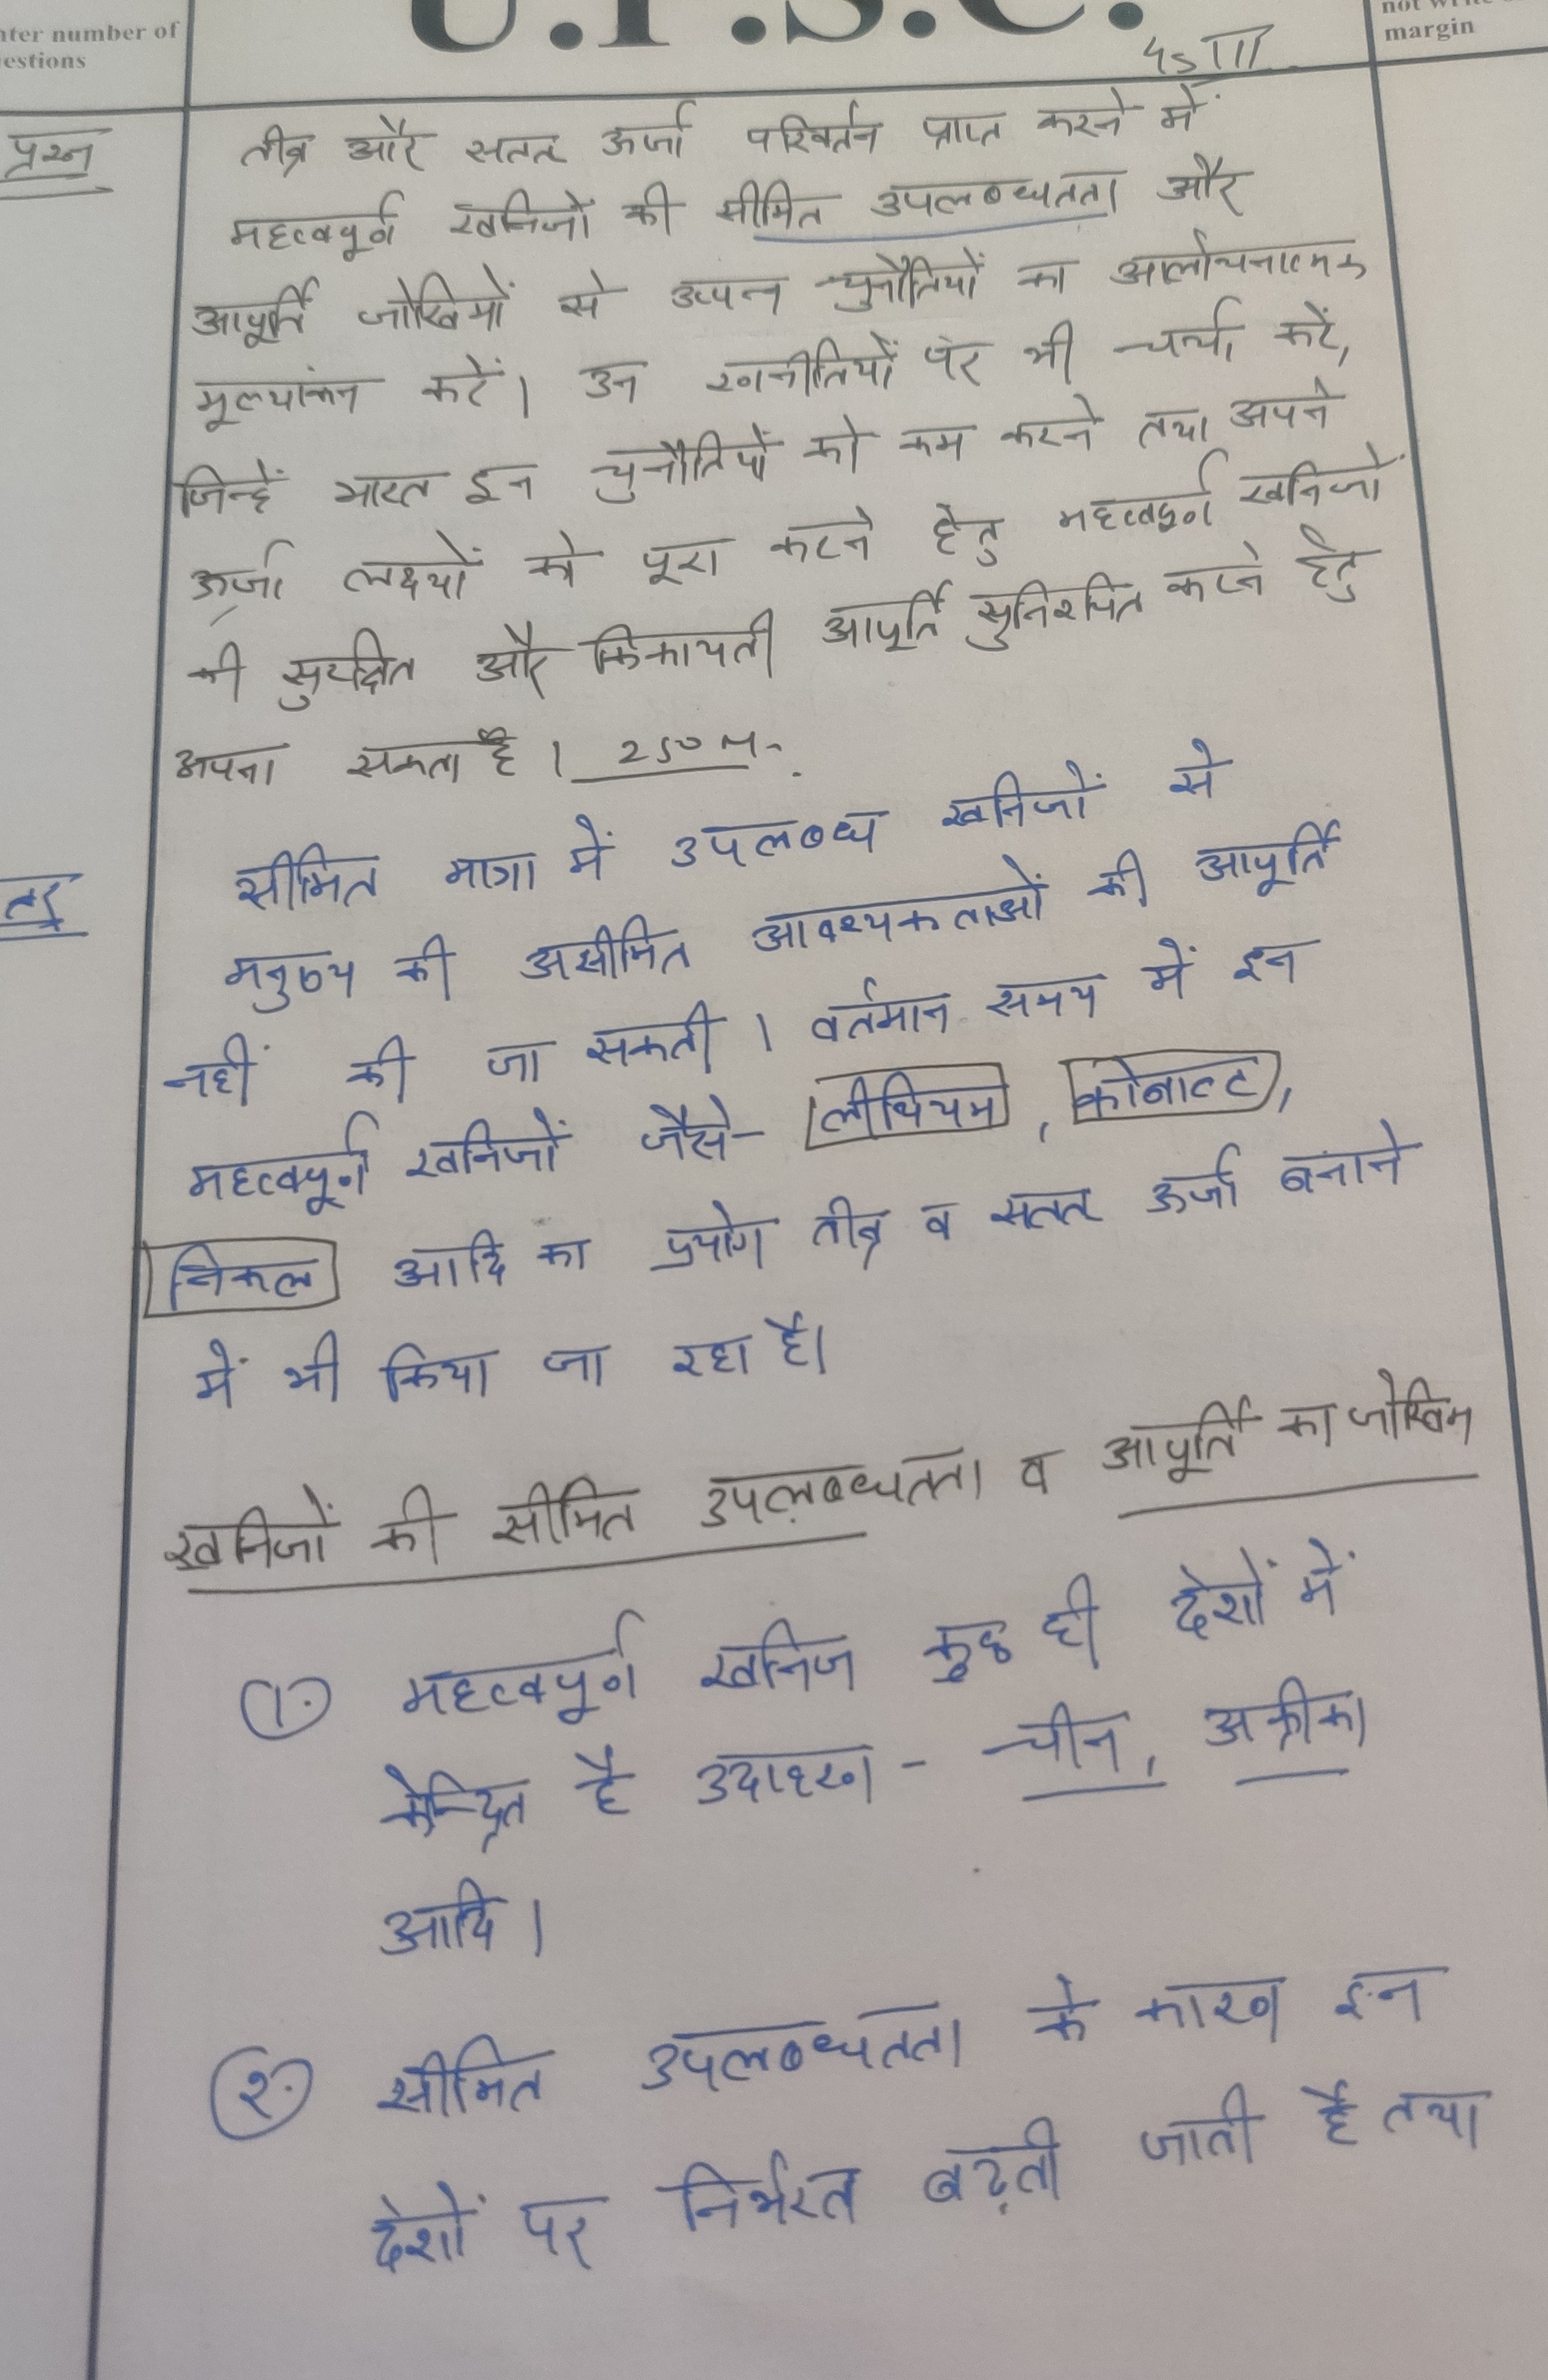 ter number of
estions
U.P.S.C.
not write
margin
GS III
प्रश्न
तीव्र और सतत ऊर्जा परिवर्तन प्राप्त करने में
महत्वपूर्ण खनिजों की सीमित उपलब्धतता और
आपूर्ति जोखिमों से उत्पन्न चुनौतियों का आलोचनात्मक
मूल्यांकन करें। उन रणनीतियों पर भी चर्चा करें,
जिन्हें भारत इन चुनौतियों को कम करने तथा अपने
ऊर्जा लक्ष्यों को पूरा करने हेतु महत्वपूर्ण खनिजों
की सुरक्षित और किफायती आपूर्ति सुनिश्चित करने हेतु
अपना सकता है। 250 M.
त्तर
सीमित मात्रा में उपलब्ध खनिजों से
मनुष्य की असीमित आवश्यकताओं की आपूर्ति
नहीं की जा सकती। वर्तमान समय में इन
महत्वपूर्ण खनिजों जैसे- लीथियम, कोबाल्ट,
निकल आदि का प्रयोग तीव्र व सतत ऊर्जा बनाने
में भी किया जा रहा है।
खनिजों की सीमित उपलब्धतता व आपूर्ति का जोखिम
1. महत्वपूर्ण खनिज कुछ ही देशों में
केन्द्रित है उदाहरण - चीन, अफ्रीका
आदि।
२. सीमित उपलब्धतता के कारण इन
देशों पर निर्भरता बढ़ती जाती है तथा